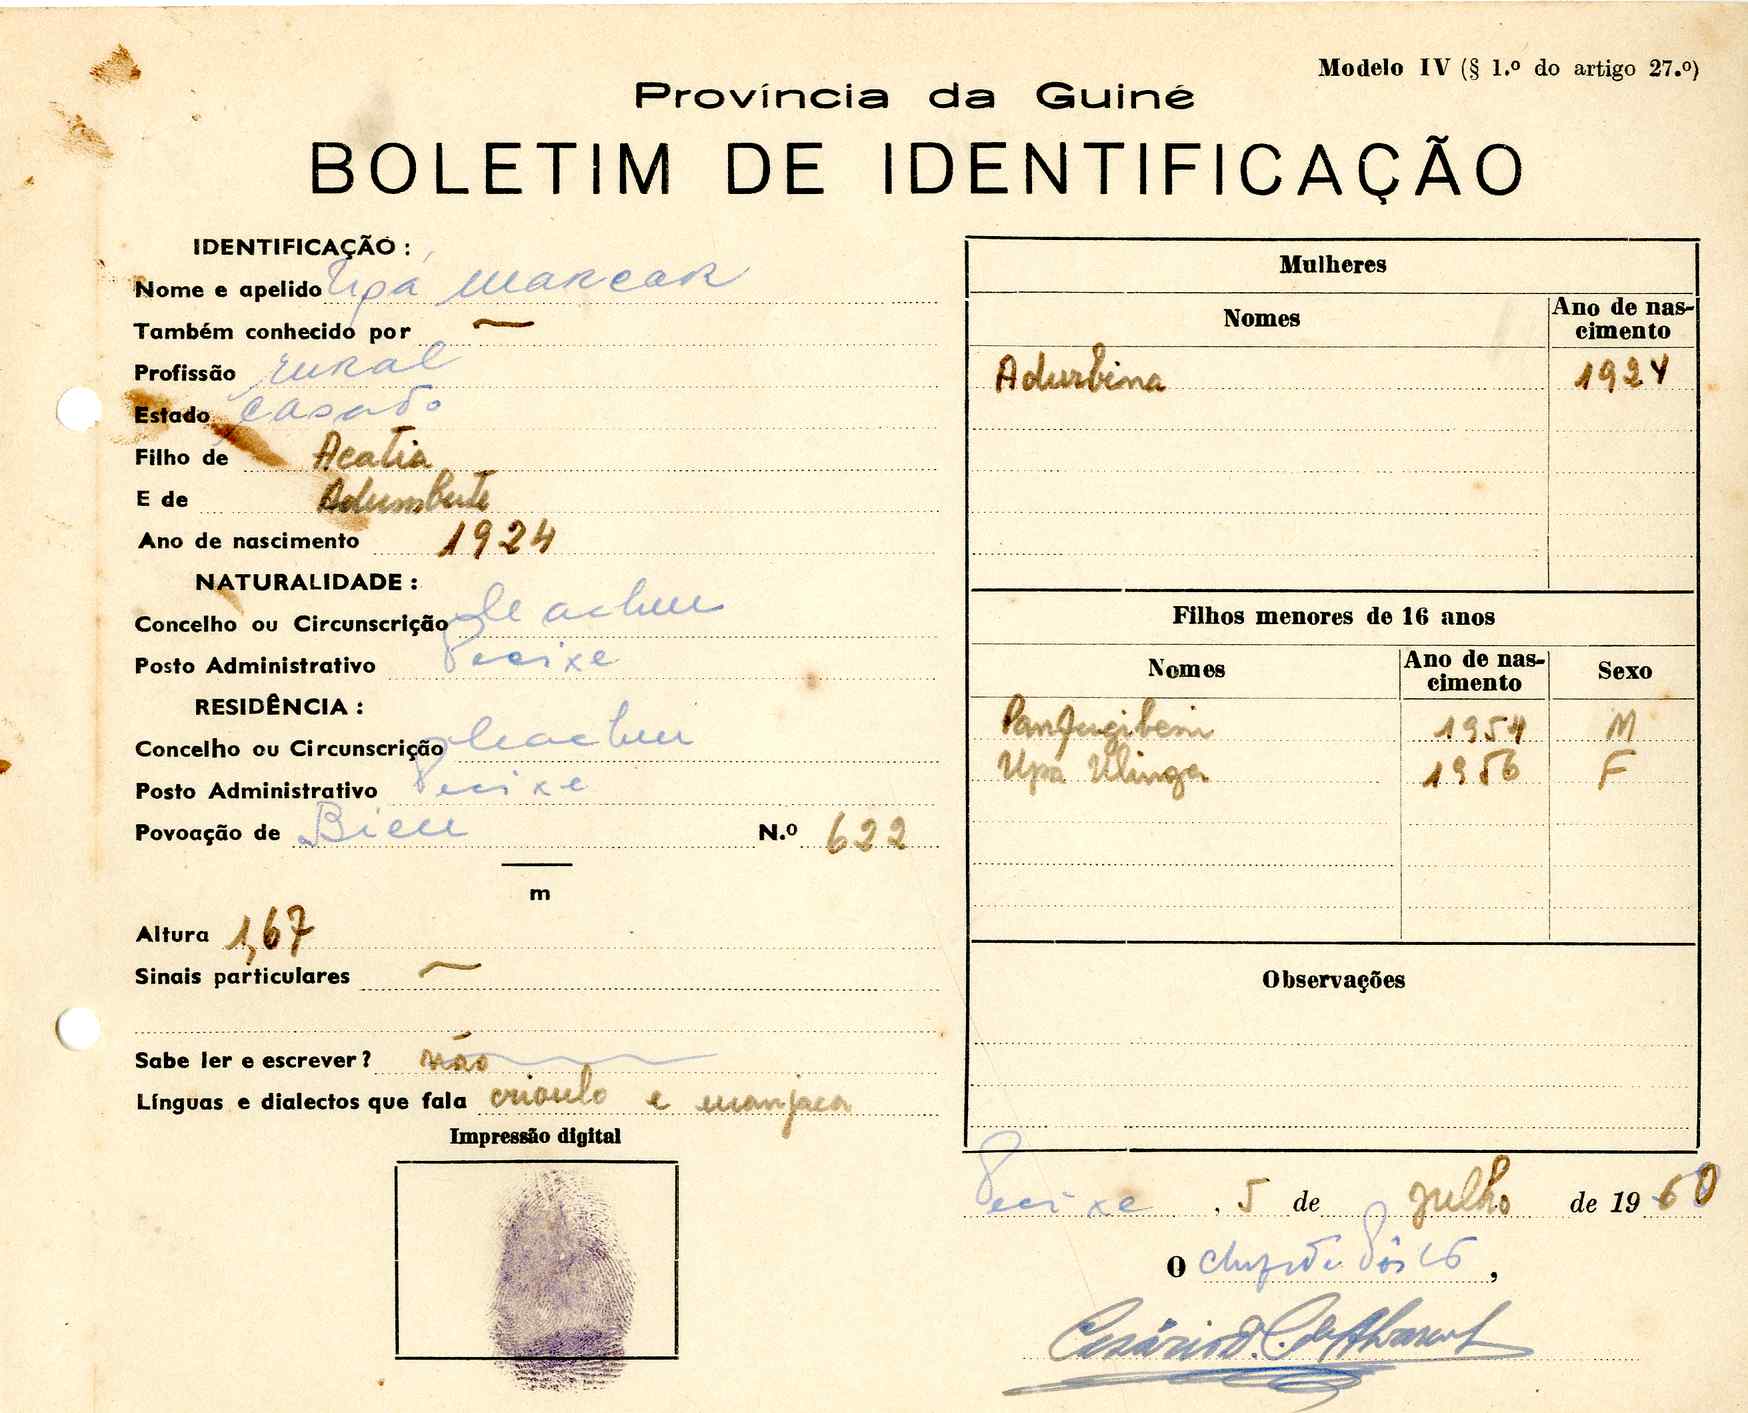 Modelo IV (§ 1.º do artigo 27.º)
Província da Guiné
BOLETIM DE IDENTIFICAÇÃO
IDENTIFICAÇÃO :
Nome e apelido Upá Marcar
Também conhecido por ~
Profissão rural
Estado casado
Filho de Acatia
E de Adumbute
Ano de nascimento 1924
NATURALIDADE :
Concelho ou Circunscrição Cacheu
Posto Administrativo Pecixe
RESIDÊNCIA :
Concelho ou Circunscrição Cacheu
Posto Administrativo Pecixe
Povoação de Bieu N.º 622
m
Altura 1,67
Sinais particulares ~
Sabe ler e escrever ? não
Línguas e dialectos que fala crioulo e manjaca
Impressão digital
Mulheres
Nomes Ano de nas-
cimento
Adurbina 1924
Filhos menores de 16 anos
Nomes Ano de nas-
cimento Sexo
Panfugibem 1954 M
Upa Ulinga 1956 F
Observações
Pecixe, 5 de julho de 1960
O chefe de Pôsto,